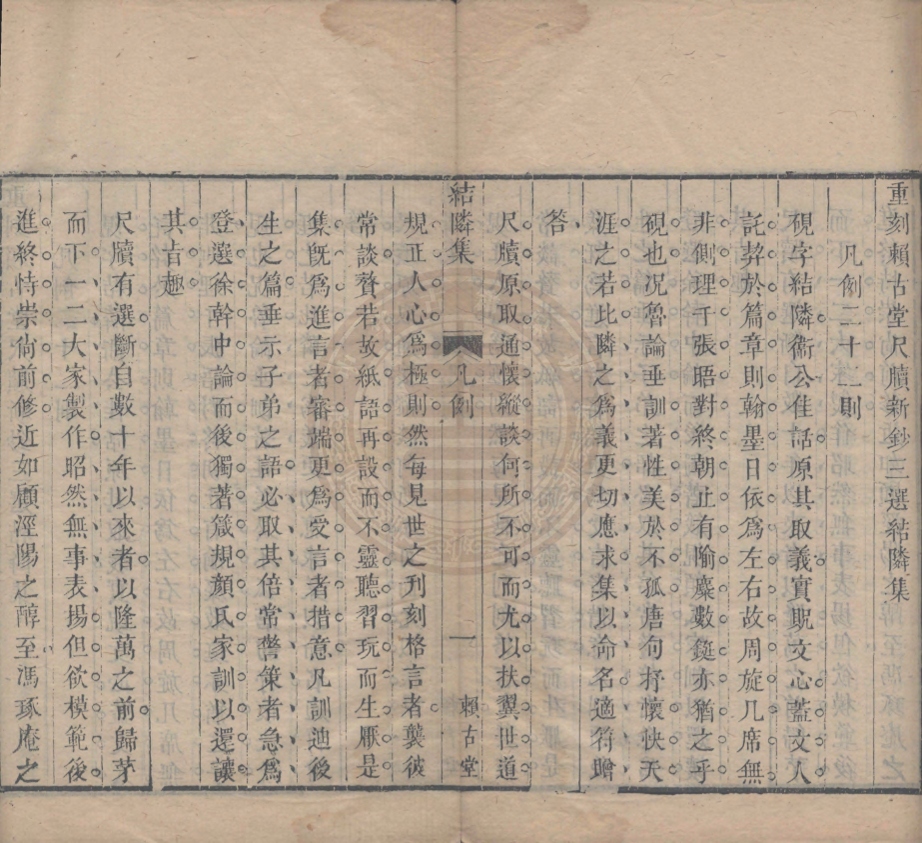 重刻賴古堂尺牘新鈔三選結隣集
凡例二十二則
硯字結隣衞公佳話原其取義實覘文心蓋文人
託契於篇章則翰墨日依為左右故周旋几席無
非側理千張晤對終朝止有隃麋數鋌亦猶之乎
硯也況魯論垂訓著性美於不孤唐句抒懷快天
涯之若比隣之為義更切應求集以命名適符贈
答
尺牘原取通懷縱談何所不可而尤以扶翼世道
結隣集 凡例 一 賴古堂
規正人心為極則然每見世之刋刻格言者襲彼
常談贅若故紙語再設而不靈聽習玩而生厭是
集既為進言者審端更為愛言者措意凡訓迪後
生之篇垂示子弟之語必取其倍常警策者急為
登選徐幹中論而後獨著箴規顏氏家訓以還讓
其旨趣
尺牘有選斷自數十年以來者以隆萬之前歸茅
而下一二大家製作昭然無事表揚但欲模範後
進終恃崇尚前修近如顧涇陽之醇至馮琢庵之